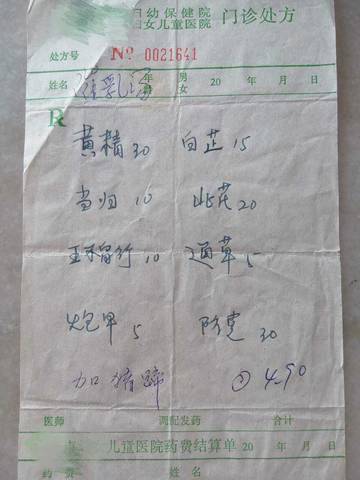 妇幼保健院 门诊处方
妇女儿童医院
处方号 No 0021641
姓名 催乳汤 年龄 男女 20 年 月 日
R
黄精 30 白芷 15
当归 10 北芪 20
王不留行 10 通草 5
炮甲 5 防党 30
加猪蹄 ② 4.90
医师 调配发药 合计
儿童医院药费结算单 20 年 月 日
药费 姓名